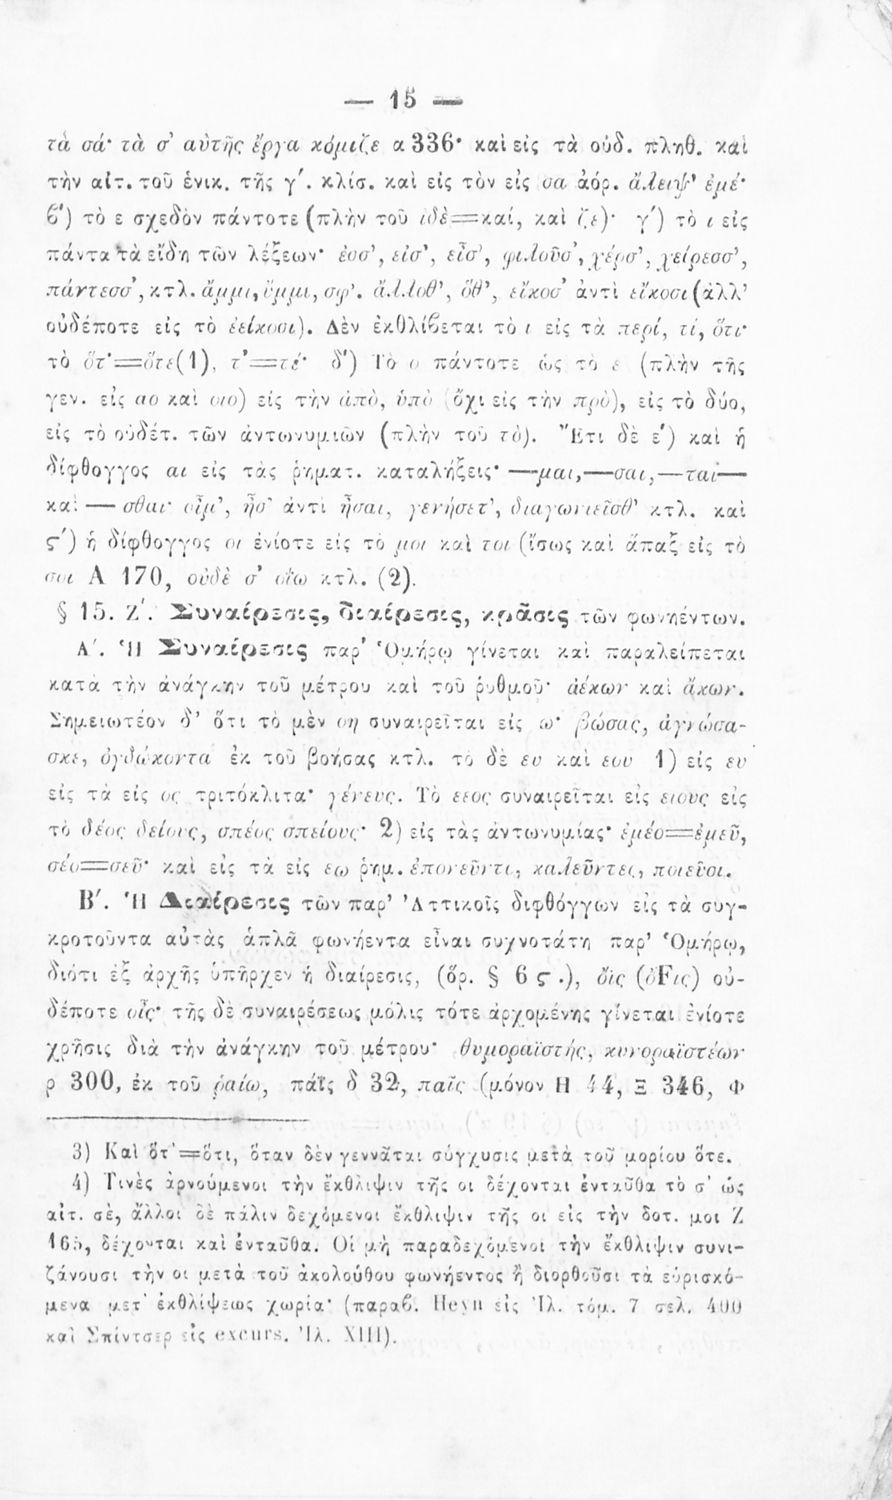 — 15 —
τὰ σά· τὰ σ' αὐτῆς ἔργα κόμιζε α 336· καὶ εἰς τὰ οὐδ. πληθ. καὶ
τὴν αἰτ. τοῦ ἑνικ. τῆς γ'. κλίσ. καὶ εἰς τὸν εἰς σα ἀόρ. ἄλειψ' ἐμέ·
ϐ') τὸ ε σχεδὸν πάντοτε (πλὴν τοῦ ἰδὲ=καί, καὶ ζε)· γ') τὸ ι εἰς
πάντα τὰ εἴδη τῶν λέξεων· ἐσσ', εἰσ', εἶσ', φιλοῦσ', χέρσ', χείρεσσ',
πάντεσσ', κτλ. ἄμμι, ὔμμι, σφ'. ἄλλοθ', ὅθ', εἴκοσ' ἀντὶ εἴκοσι (ἀλλ'
οὐδέποτε εἰς τὸ ἐείκοσι). Δὲν ἐκθλίϐεται τὸ ι εἰς τὰ περί, τί, ὅτι·
τὸ ὅτ'=ὅτε(1), τ'=τέ· δ') Τὸ ο πάντοτε ὡς τὸ ε (πλὴν τῆς
γεν. εἰς αο καὶ οιο) εἰς τὴν ἀπὸ, ὑπὸ (ὄχι εἰς τὴν πρὸ), εἰς τὸ δύο,
εἰς τὸ οὐδέτ. τῶν ἀντωνυμιῶν (πλὴν τοῦ τὸ). Ἔτι δὲ ε') καὶ ἡ
δίφθογγος αι εἰς τὰς ῥηματ. καταλήξεις· —μαι,—σαι,—ται—
καὶ — σθαι· οἶμ', ἦσ' ἀντὶ ἦσαι, γενήσετ', διαγωνιεῖσθ' κτλ. καὶ
ϛ') ἡ δίφθογγος οι ἐνίοτε εἰς τὸ μοι καὶ τοι (ἴσως καὶ ἅπαξ εἰς τὸ
σοι Α 170, οὐδὲ σ' οἴω κτλ. (2).
§ 15. Ζ'. Συναίρεσις, διαίρεσις, κρᾶσις τῶν φωνηέντων.
Α'. Ἡ Συναίρεσις παρ' Ὁμήρῳ γίνεται καὶ παραλείπεται
κατὰ τὴν ἀνάγκην τοῦ μέτρου καὶ τοῦ ῥυθμοῦ· ἀέκων καὶ ἄκων.
Σημειωτέον δ' ὅτι τὸ μὲν οη συναιρεῖται εἰς ω· βώσας, ἀγνώσα-
σκε, ὀγδώκοντα ἐκ τοῦ βοήσας κτλ. τὸ δὲ ευ καὶ εου 1) εἰς ευ
εἰς τὰ εἰς ος τριτόκλιτα· γένευς. Τὸ εεος συναιρεῖται εἰς ειους εἰς
τὸ δέος δείους, σπέος σπείους· 2) εἰς τὰς ἀντωνυμίας· ἐμέο=ἐμεῦ,
σέο=σεῦ· καὶ εἰς τὰ εἰς εω ῥημ. ἐπονεῦντο, καλεῦντες, ποιεῦσι.
Β'. Ἡ Διαίρεσις τῶν παρ' Ἀττικοῖς διφθόγγων εἰς τὰ συγ-
κροτοῦντα αὐτὰς ἁπλᾶ φωνήεντα εἶναι συχνοτάτη παρ' Ὁμήρῳ,
διότι ἐξ ἀρχῆς ὑπῆρχεν ἡ διαίρεσις, (ὅρ. § 6 ϛ .), ὄϊς (ὀFις) οὐ-
δέποτε οἶς· τῆς δὲ συναιρέσεως μόλις τότε ἀρχομένης γίνεται ἐνίοτε
χρῆσις διὰ τὴν ἀνάγκην τοῦ μέτρου· θυμοραϊστής, κυνοραϊστέων
ρ 300, ἐκ τοῦ ῥαίω, πάϊς δ 32, παῖς (μόνον Η 44, Ξ 346, Φ
3) Καὶ ὅτ'=ὅτι, ὅταν δὲν γεννᾶται σύγχυσις μετὰ τοῦ μορίου ὅτε.
4) Τινὲς ἀρνούμενοι τὴν ἔκθλιψιν τῆς οι δέχονται ἐνταῦθα τὸ σ' ὡς
αἰτ. σὲ, ἄλλοι δὲ πάλιν δεχόμενοι ἔκθλιψιν τῆς οι εἰς τὴν δοτ. μοι Ζ
165, δέχονται καὶ ἐνταῦθα. Οἱ μὴ παραδεχόμενοι τὴν ἔκθλιψιν συνι-
ζάνουσι τὴν οι μετὰ τοῦ ἀκολούθου φωνήεντος ἢ διορθοῦσι τὰ εὑρισκό-
μενα μετ' ἐκθλίψεως χωρία· (παραϐ. Heyn εἰς Ἰλ. τόμ. 7 σελ. 400
καὶ Σπίντσερ εἰς excurs. Ἰλ. XIII).